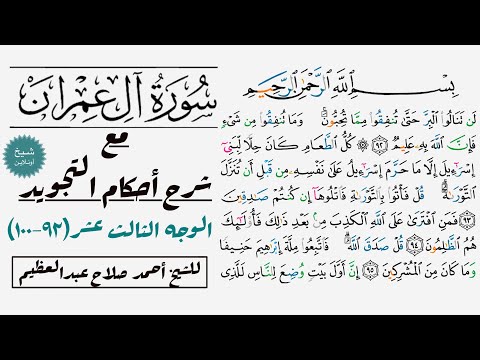 سُورَةُ آلِ عِمْرَان
مع
شيخ
أونلاين
شرح أحكام التجويد
الوجه الثالث عشر (٩٢-١٠٠)
للشيخ أحمد صلاح عبدالعظيم
بِسْمِ اللَّهِ الرَّحْمَٰنِ الرَّحِيمِ
لَن تَنَالُوا الْبِرَّ حَتَّىٰ تُنفِقُوا مِمَّا تُحِبُّونَ ۚ وَمَا تُنفِقُوا مِن شَيْءٍ
فَإِنَّ اللَّهَ بِهِ عَلِيمٌ ٩٢ ۞ كُلُّ الطَّعَامِ كَانَ حِلًّا لِّبَنِي
إِسْرَائِيلَ إِلَّا مَا حَرَّمَ إِسْرَائِيلُ عَلَىٰ نَفْسِهِ مِن قَبْلِ أَن تُنَزَّلَ
التَّوْرَاةُ ۗ قُلْ فَأْتُوا بِالتَّوْرَاةِ فَاتْلُوهَا إِن كُنتُمْ صَادِقِينَ
٩٣ فَمَنِ افْتَرَىٰ عَلَى اللَّهِ الْكَذِبَ مِن بَعْدِ ذَٰلِكَ فَأُولَٰئِكَ
هُمُ الظَّالِمُونَ ٩٤ قُلْ صَدَقَ اللَّهُ ۗ فَاتَّبِعُوا مِلَّةَ إِبْرَاهِيمَ حَنِيفًا
وَمَا كَانَ مِنَ الْمُشْرِكِينَ ٩٥ إِنَّ أَوَّلَ بَيْتٍ وُضِعَ لِلنَّاسِ لَلَّذِي